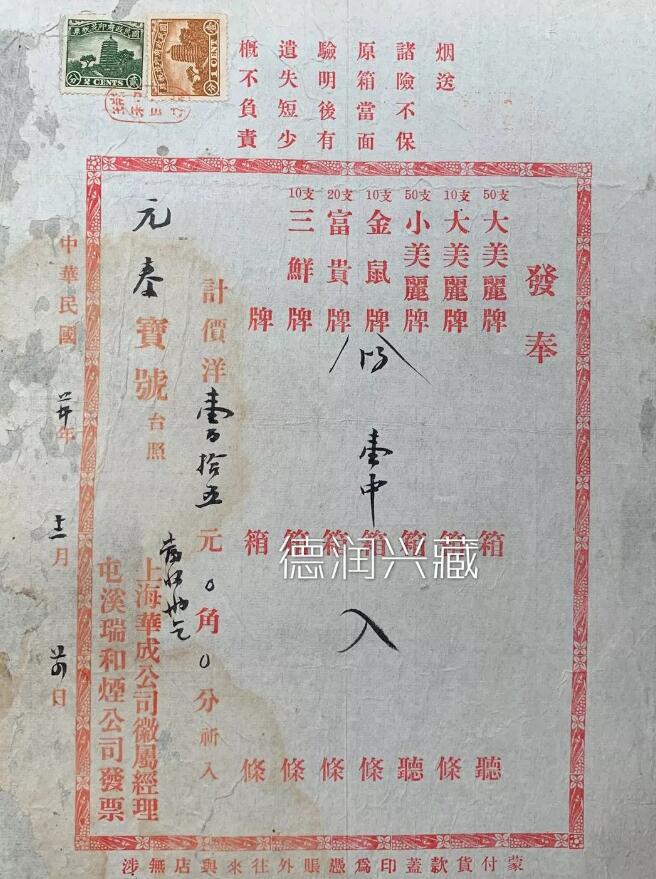 烟送
諸險不保
原箱當面
驗明後有
遺失短少
概不負責
國民政府印花稅票
1 CENT
國民政府印花稅票
2 CENTS
發奉
50支大美麗牌 箱 聽
10支大美麗牌 箱 條
50支小美麗牌 箱 聽
10支金鼠牌 壹中箱 條
20支富貴牌 箱 條
10支三鮮牌 箱 條
牌 箱 條
計價洋壹百拾五元0角0分祈入
元泰寶號台照
上海華成公司徽屬經理
屯溪瑞和煙公司發票
中華民國廿年十二月廿四日
蒙付貨款蓋印爲憑賬外往來與店無涉
德润兴藏